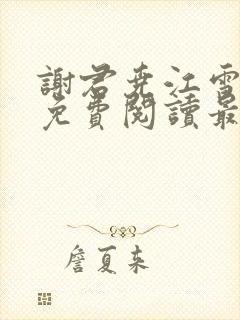 謝君堯江雪
免費閱讀最
詹夏来